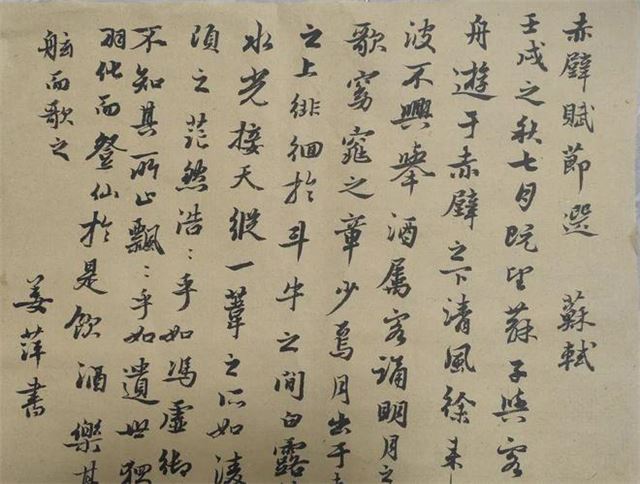 赤壁賦節選 蘇軾
壬戌之秋七月既望蘇子與客
舟遊于赤壁之下清風徐来
波不興舉酒屬客誦明月之
歌窈窕之章少焉月出于
之上徘徊於斗牛之间白露
水光接天縱一葦之所如凌
頃之茫然浩:乎如馮虛御
不知其所止飄:乎如遺世獨
羽化而登仙於是飲酒樂甚
舷而歌之
姜萍書